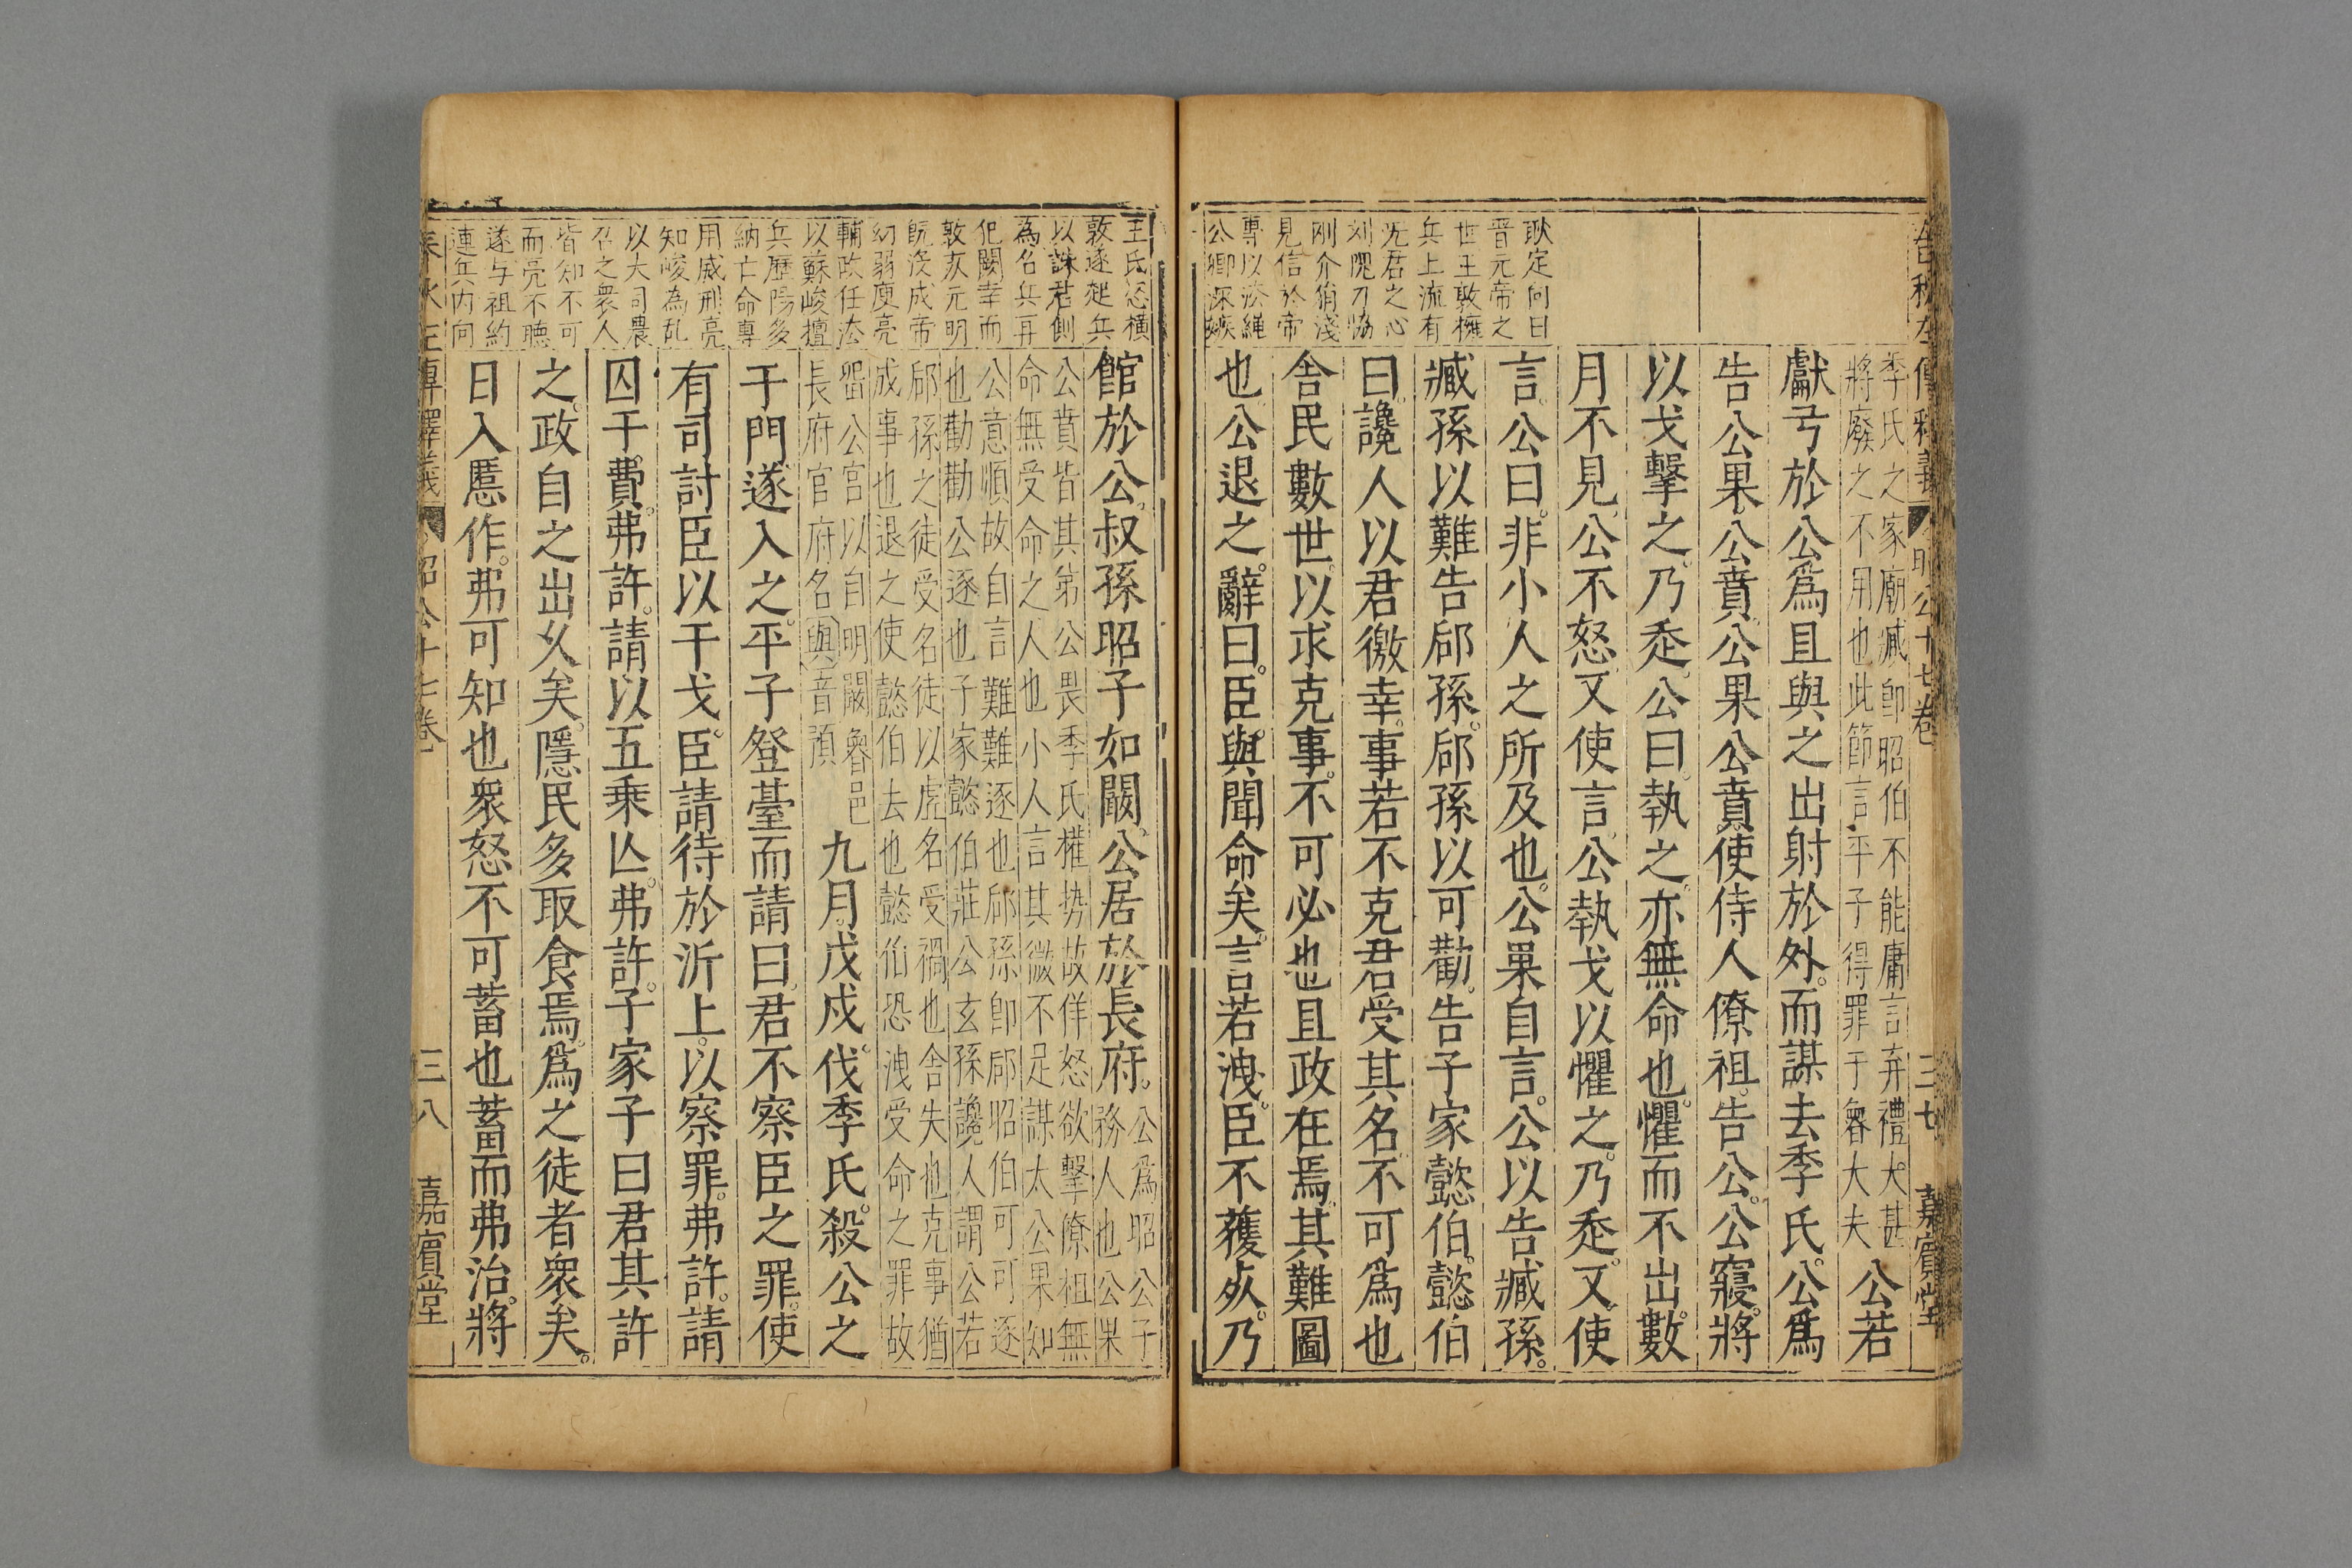 春秋左傳釋義 昭公十七卷 三七 嘉賓堂
耿定向曰
晉元帝之
世王敦擁
兵上流有
无君之心
刘隗刁協
剛介
見信於帝
專以法繩
公卿深嫉
季氏之家廟臧卽昭伯不能庸言弃禮大甚
將廢之不用也此節言平子得罪于魯大夫
公若
獻弓於公爲且與之出射於外。而謀去季氏。公爲
告公果公賁。公果公賁。使侍人僚祖。告公。公寢。將
以戈擊之。乃走。公曰。執之。亦無命也。懼而不出。數
月不見。公不怒。又使言。公執戈以懼之。乃走。又使
言。公曰。非小人之所及也。公果自言。公以告臧孫。
臧孫以難告郈孫。郈孫以可勸。告子家懿伯。懿伯
曰。讒人以君徼幸。事若不克。君受其名。不可爲也
舍民數世。以求克事。不可必也且政在焉。其難圖
也。公退之。辭曰。臣與聞命矣。言若洩。臣不獲死。乃
王氏怒橫
敦遂起兵
以誅君側
為名兵再
犯闕幸而
敦灰元明
既沒成帝
幼弱庾亮
輔政任法
以蘇峻擅
兵歷陽多
納亡命專
用威刑亮
知峻為乱
以大司農
召之衆人
皆知不可
而亮不聽
遂与祖約
連兵内向
館於公。叔孫昭子如闞。公居於長府。
公爲昭公子
務人也公果
公賁皆其弟公畏季氏權势故佯怒欲擊僚祖無
命無受命之人也小人言其微不足謀太公果如
公意順故自言難難逐也郈孫卽郈昭伯可可逐
也勸勸公逐也子家懿伯莊公玄孫讒人謂公若
郈孫之徒受名徒以虛名受禍也舍失也克事猶
成事也退之使懿伯去也懿伯恐洩受命之罪故
畱公宮以自明闞魯邑
長府官府名與音預
九月戊戌。伐季氏。殺公之
于門遂入之。平子登臺而請曰。君不察臣之罪。使
有司討臣以干戈。臣請待於沂上。以察罪。弗許。請
囚于費。弗許。請以五乘亾。弗許。子家子曰君其許
之。政自之出乆矣。隱民多取食焉。爲之徒者衆矣。
日入慝作。弗可知也衆怒不可蓄也蓄而弗治。將
春秋左傳釋義 昭公十七卷 三八 嘉賓堂